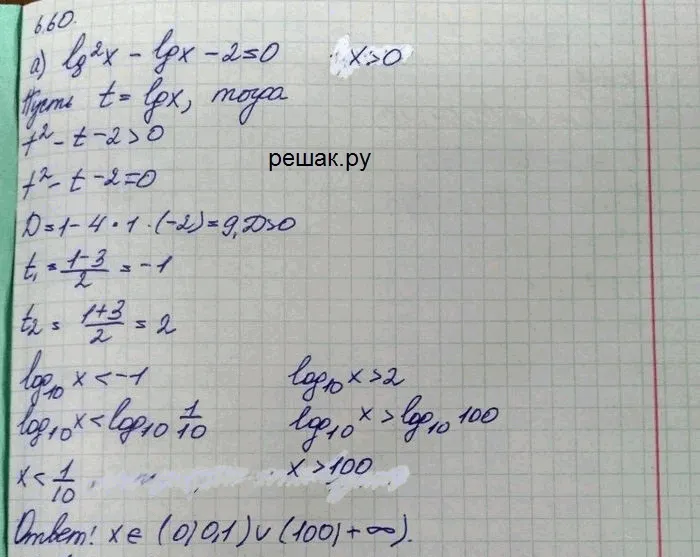 6.60.
а) lg²x - lgx - 2 = 0 x > 0
Пусть t = lgx, тогда
t² - t - 2 > 0
решак.ру
t² - t - 2 = 0
D = 1 - 4 · 1 · (-2) = 9, D>0
t₁ = (1-3)/2 = -1
t₂ = (1+3)/2 = 2
log₁₀ x < -1 log₁₀ x > 2
log₁₀ x < log₁₀ 1/10 log₁₀ x > log₁₀ 100
x < 1/10 x > 100
Ответ: x ∈ (0; 0,1) ∪ (100; +∞).